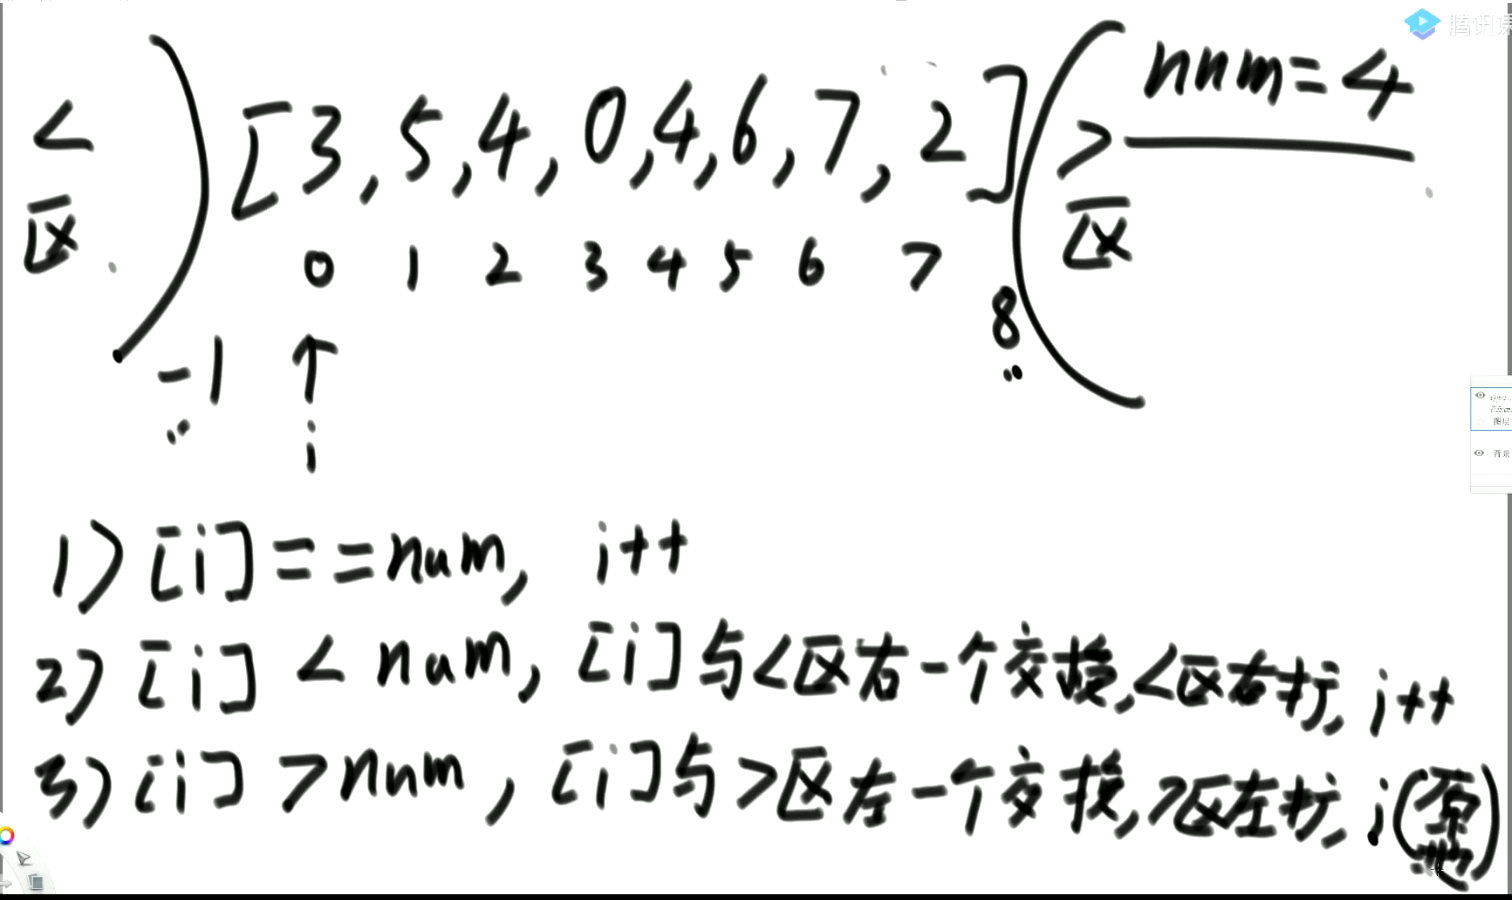 腾讯课
num=4
< ) [3,5,4,0,4,6,7,2] ( >
区 区
0 1 2 3 4 5 6 7
-1 8
i
1) [i]==num, i++
2) [i] < num, [i]与<区右一个交换,<区右扩, i++
3) [i] > num, [i]与>区左一个交换,>区左扩, i(原地)
图层
背景